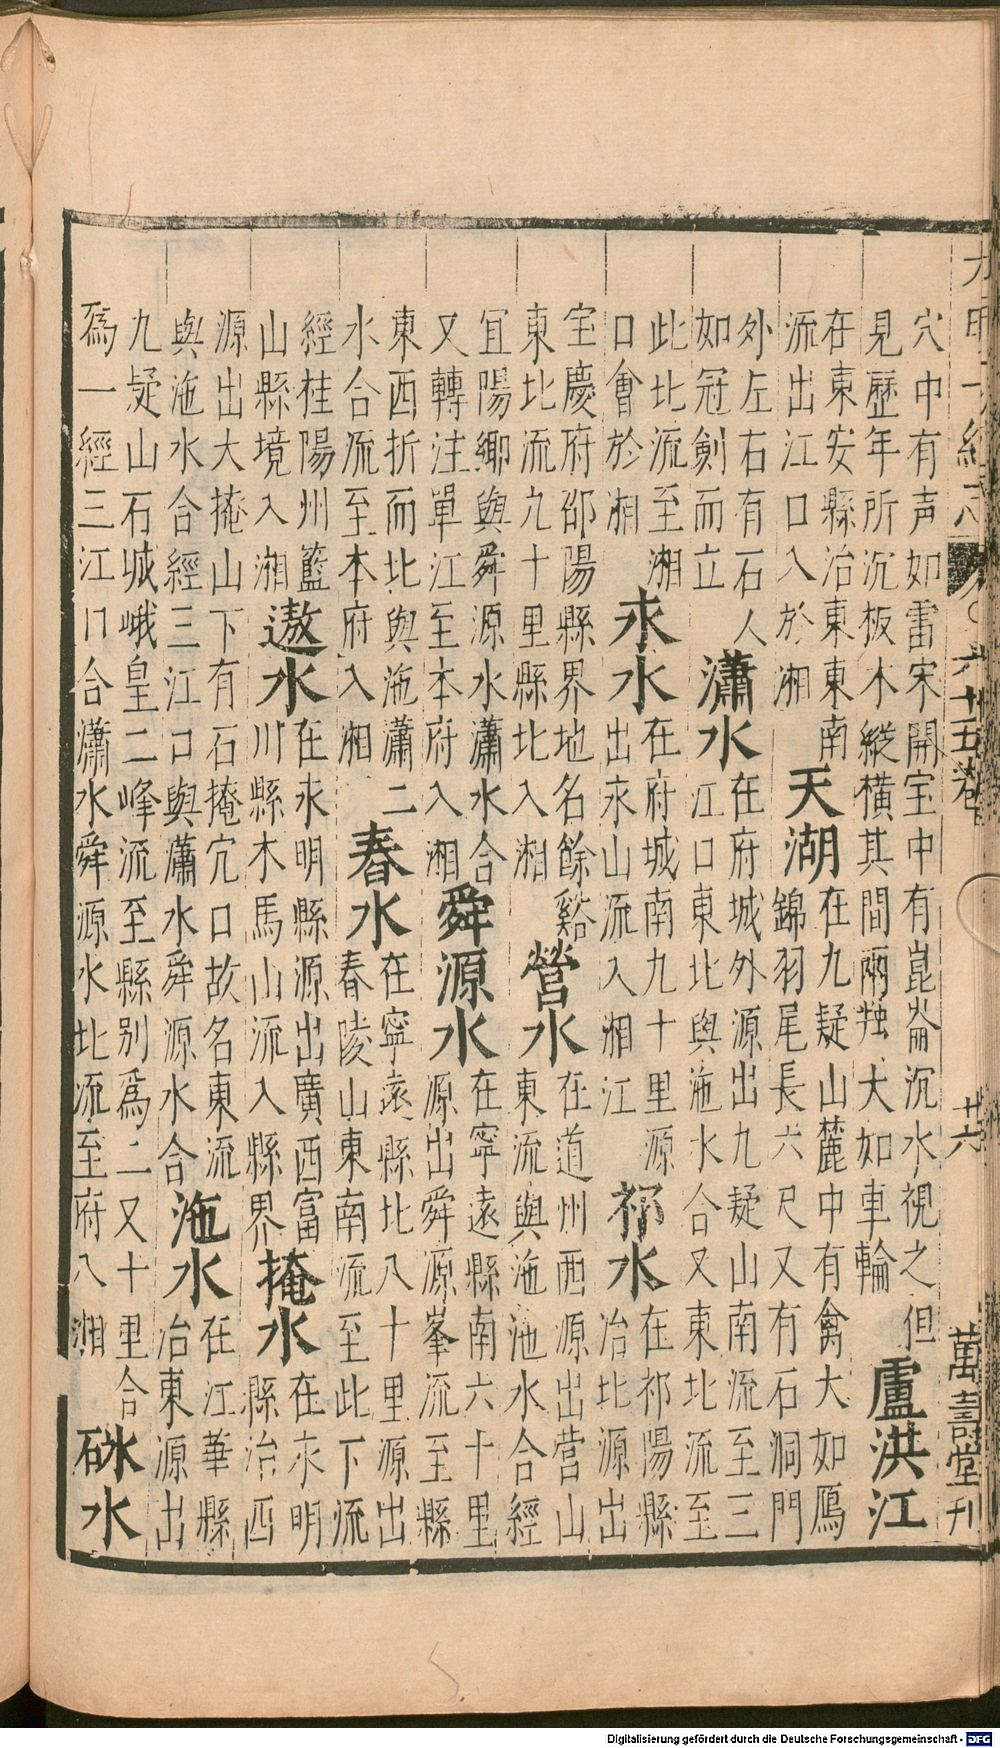 大明一統志 六十五卷 廿六 萬壽堂刊
穴中有声如雷宋開宝中有崑崙沉水視之但
見歷年所沉板木縱横其間兩大如車輪
盧洪江
在東安縣治東東南
流出江口入於湘
天湖
在九疑山麓中有禽大如鴈
錦羽尾長六尺又有石洞門
外左右有石人
如冠劍而立
瀟水
在府城外源出九疑山南流至三
江口東北與沲水合又東北流至
此北流至湘
口會於湘
永水
在府城南九十里源
出永山流入湘江
祁水
在祁陽縣
治北源出
宝慶府邵陽縣界地名餘谿
東北流九十里縣北入湘
營水
在道州西源出营山
東流與沲池水合經
宜陽鄉與舜源水瀟水合
又轉注單江至本府入湘
舜源水
在寧遠縣南六十里
源出舜源峯流至縣
東西折而北與沲瀟二
水合流至本府入湘
春水
在寧遠縣北八十里源出
春陵山東南流至此下流
經桂陽州藍
山縣境入湘
遨水
在永明縣源出廣西富
川縣木馬山流入縣界
掩水
在永明
縣治西
源出大掩山下有石掩穴口故名東流
與沲水合經三江口與瀟水舜源水合
沲水
在江華縣
治東源出
九疑山石城峨皇二峰流至縣别爲二又十里合
爲一經三江口合瀟水舜源水北流至府入湘
砅水
Digitalisierung gefördert durch die Deutsche Forschungsgemeinschaft - DFG